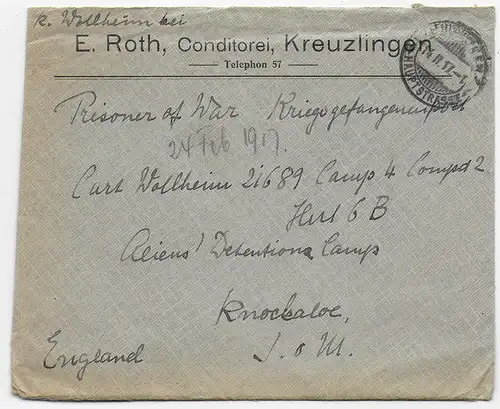 K. Wollheim bei
E. Roth, Conditorei, Kreuzlingen
Telephon 57
HAUPTSTRASSE
Prisoner of War Kriegsgefangenenpost
24 Feb 1917.
Curt Wollheim 21689 Camp 4 Compd 2
Hut 6 B
Aliens' Detention Camp
Knockaloe,
England I. o M.